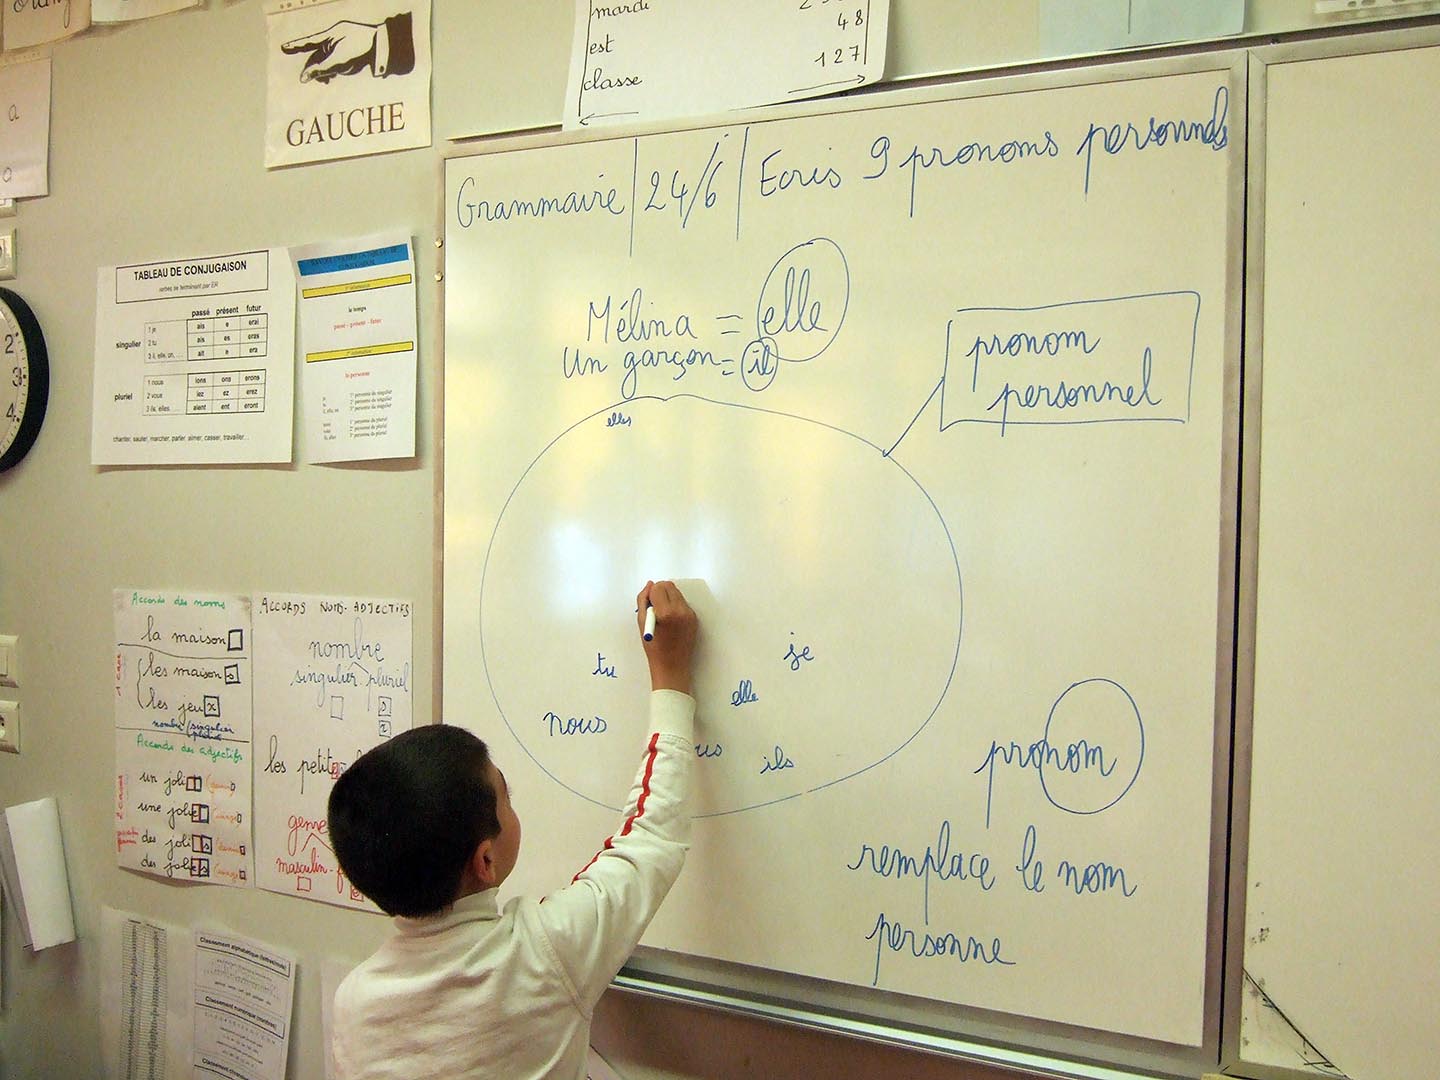 GAUCHE
mardi
est 48
classe 127
Grammaire | 24/6 | Ecris 9 pronoms personnels
Mélina = elle
Un garçon = il
pronom
personnel
elles
tu
je
elle
nous
ils
pronom
remplace le nom
personne
TABLEAU DE CONJUGAISON
verbes se terminant par ER
passé présent futur
singulier
1 je ais e erai
2 tu ais es eras
3 il, elle, on, ... ait e era
pluriel
1 nous ions ons erons
2 vous iez ez erez
3 ils, elles aient ent eront
chanter, sauter, marcher, parler, aimer, casser, travailler...
le temps
passé - présent - futur
la personne
Accords des noms
la maison
les maisons
les jeux
nombre
Accords des adjectifs
un joli
une jolie
des jolis
des jolies
ACCORDS NOMS-ADJECTIFS
nombre
singulier pluriel
s
x
les petits
genre
masculin
Classement alphabétique
Classement numérique (nombres)
2
3
4